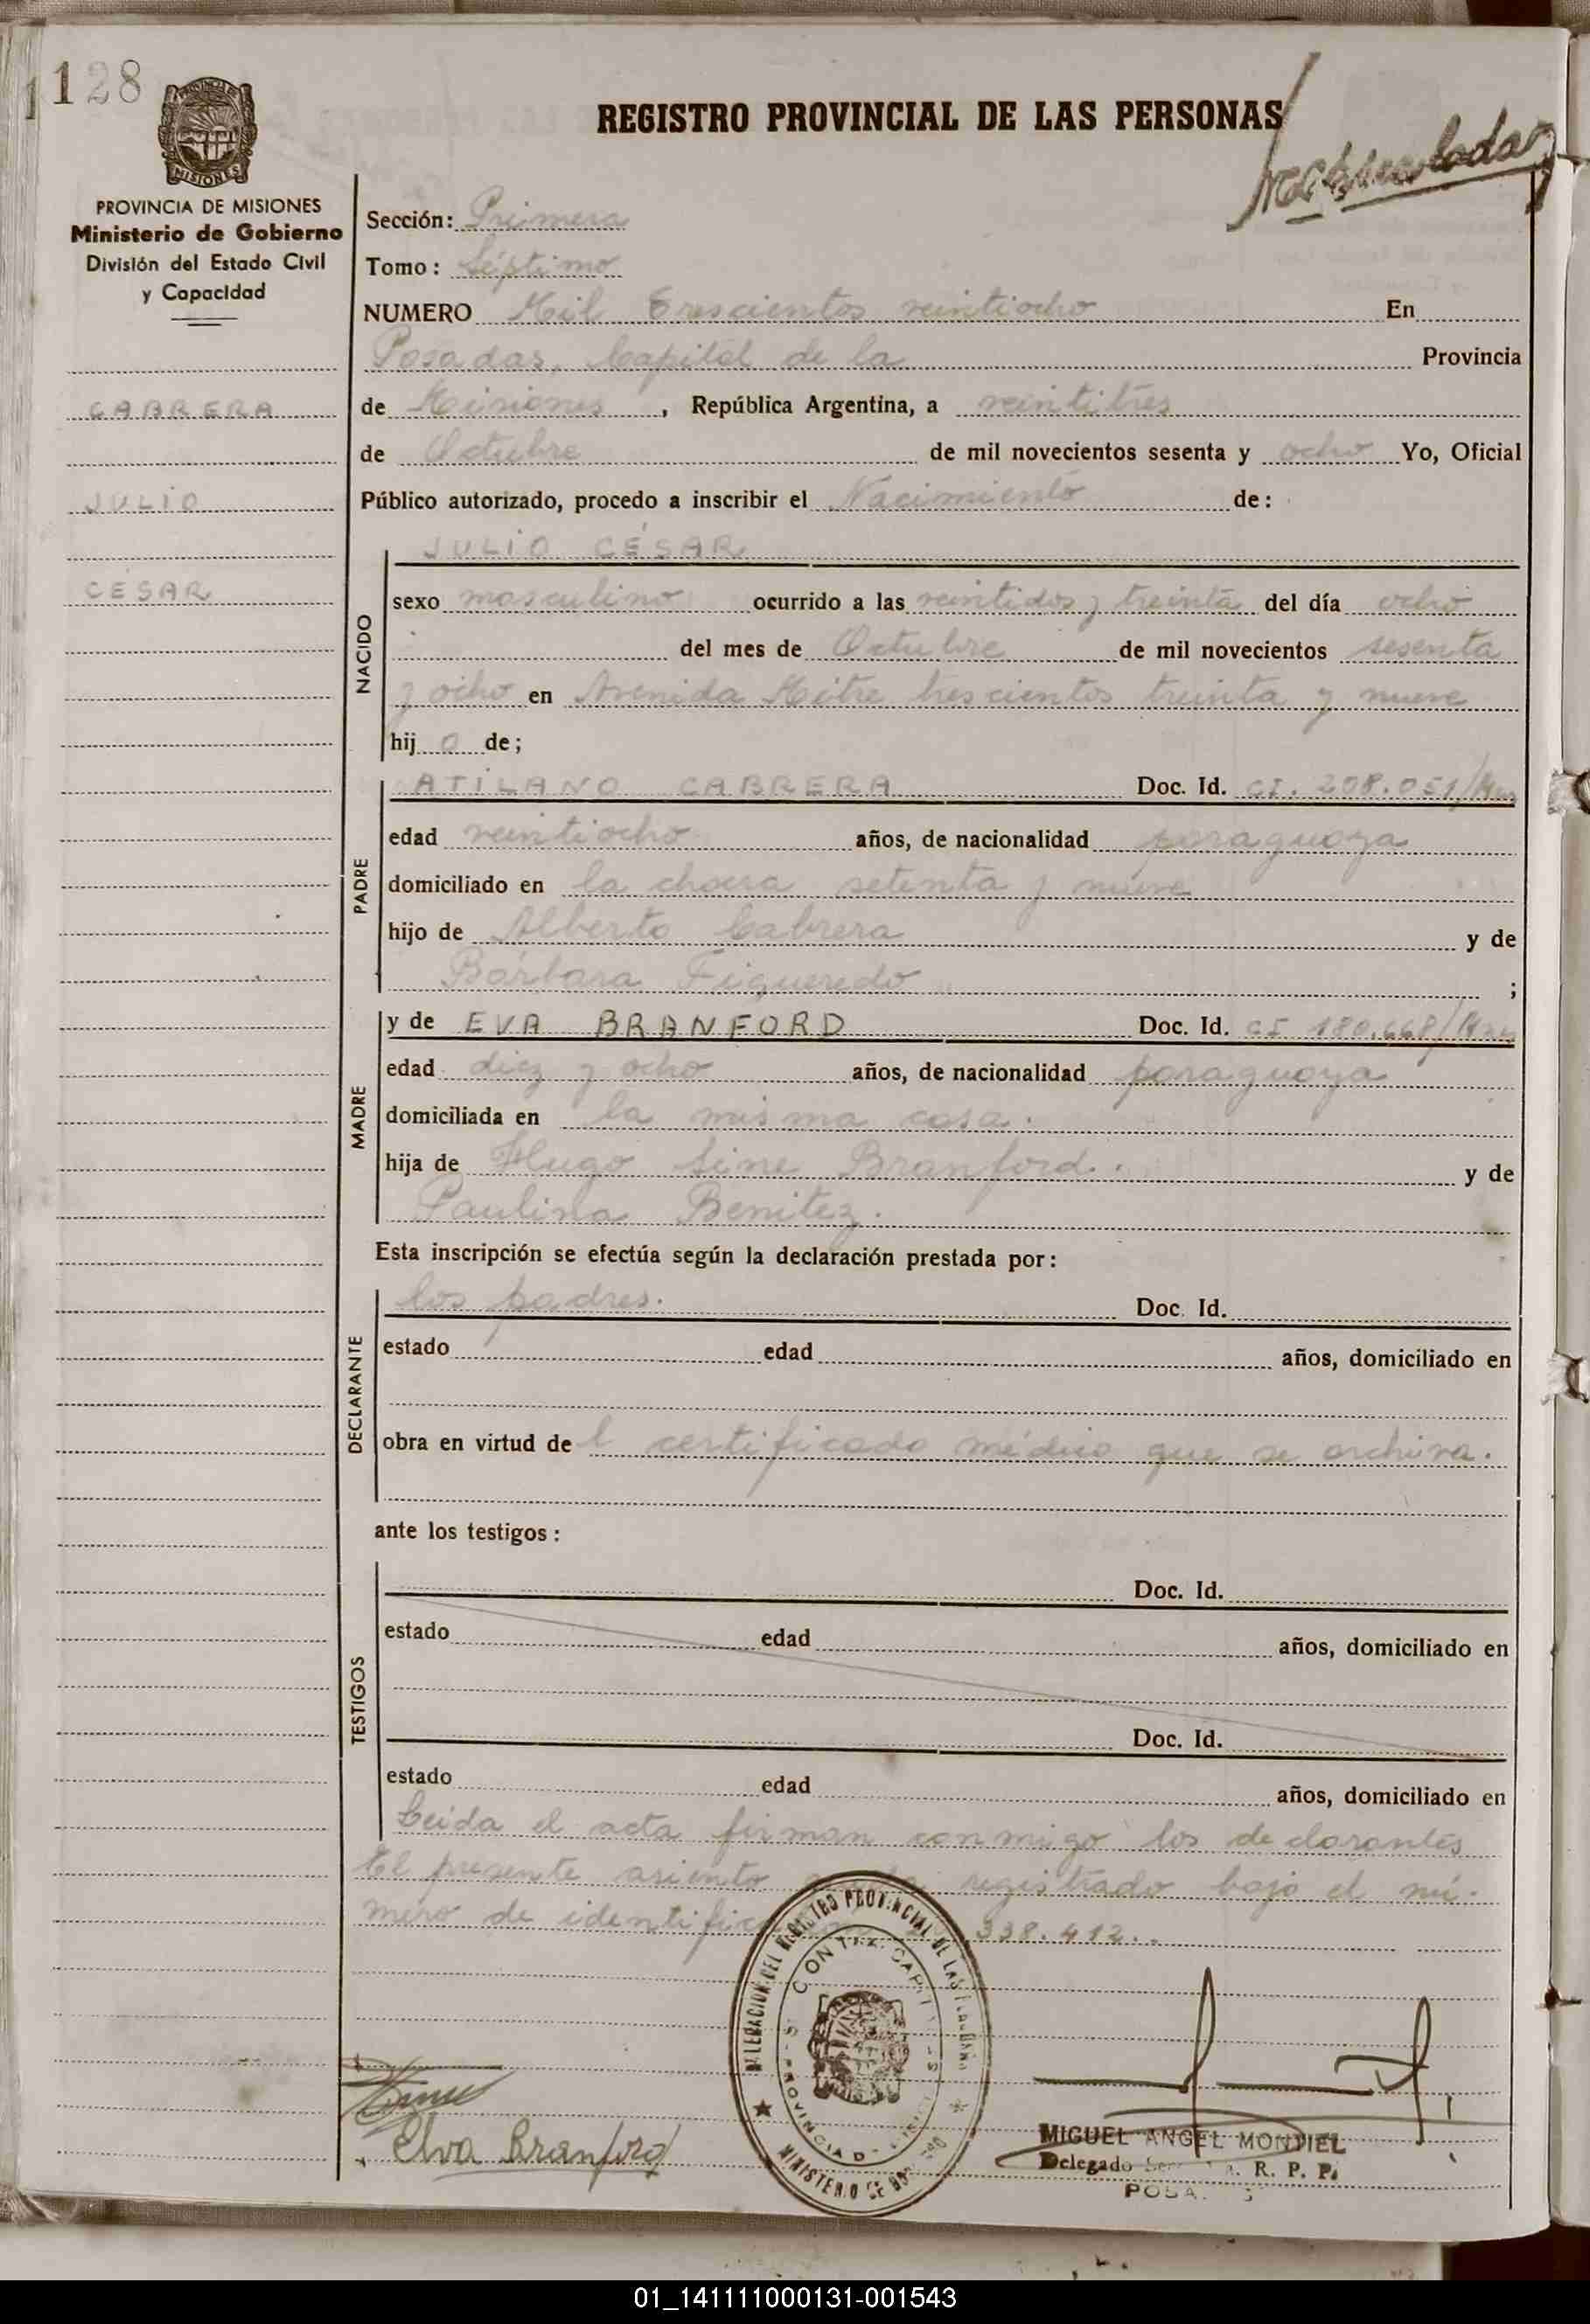 1128
REGISTRO PROVINCIAL DE LAS PERSONAS
MISIONES
PROVINCIA DE MISIONES
Ministerio de Gobierno
División del Estado Civil
y Capacidad
CABRERA
JULIO
CÉSAR
Sección: Primera
Tomo: Séptimo
NUMERO Mil trescientos veintiocho En
Posadas, Capital de la Provincia
de Misiones, República Argentina, a veintitrés
de Octubre de mil novecientos sesenta y ocho Yo, Oficial
Público autorizado, procedo a inscribir el Nacimiento de:
NACIDO
JULIO CÉSAR
sexo masculino ocurrido a las veintidos y treinta del día ocho
del mes de Octubre de mil novecientos sesenta
y ocho en Avenida Mitre trescientos treinta y nueve
hij o de;
PADRE
ATILANO CABRERA Doc. Id. CI. 208.051/Mnes
edad veintiocho años, de nacionalidad paraguaya
domiciliado en la chacra setenta y nueve
hijo de Alberto Cabrera y de
Bárbara Figueredo ;
MADRE
y de EVA BRANFORD Doc. Id. CI 180.668/Mnes
edad diez y ocho años, de nacionalidad paraguaya
domiciliada en la misma casa.
hija de Hugo Branford. y de
Paulina Benitez.
Esta inscripción se efectúa según la declaración prestada por:
DECLARANTE
los padres. Doc. Id.
estado edad años, domiciliado en
obra en virtud de l certificado médico que se archiva.
ante los testigos:
TESTIGOS
Doc. Id.
estado edad años, domiciliado en
Doc. Id.
estado edad años, domiciliado en
Leida el acta firman conmigo los declarantes
El presente asiento registrado bajo el nú-
mero de 338.412..
Elva Branford
MIGUEL ANGEL MONTIEL
Delegado R. P. P.
01_141111000131-001543